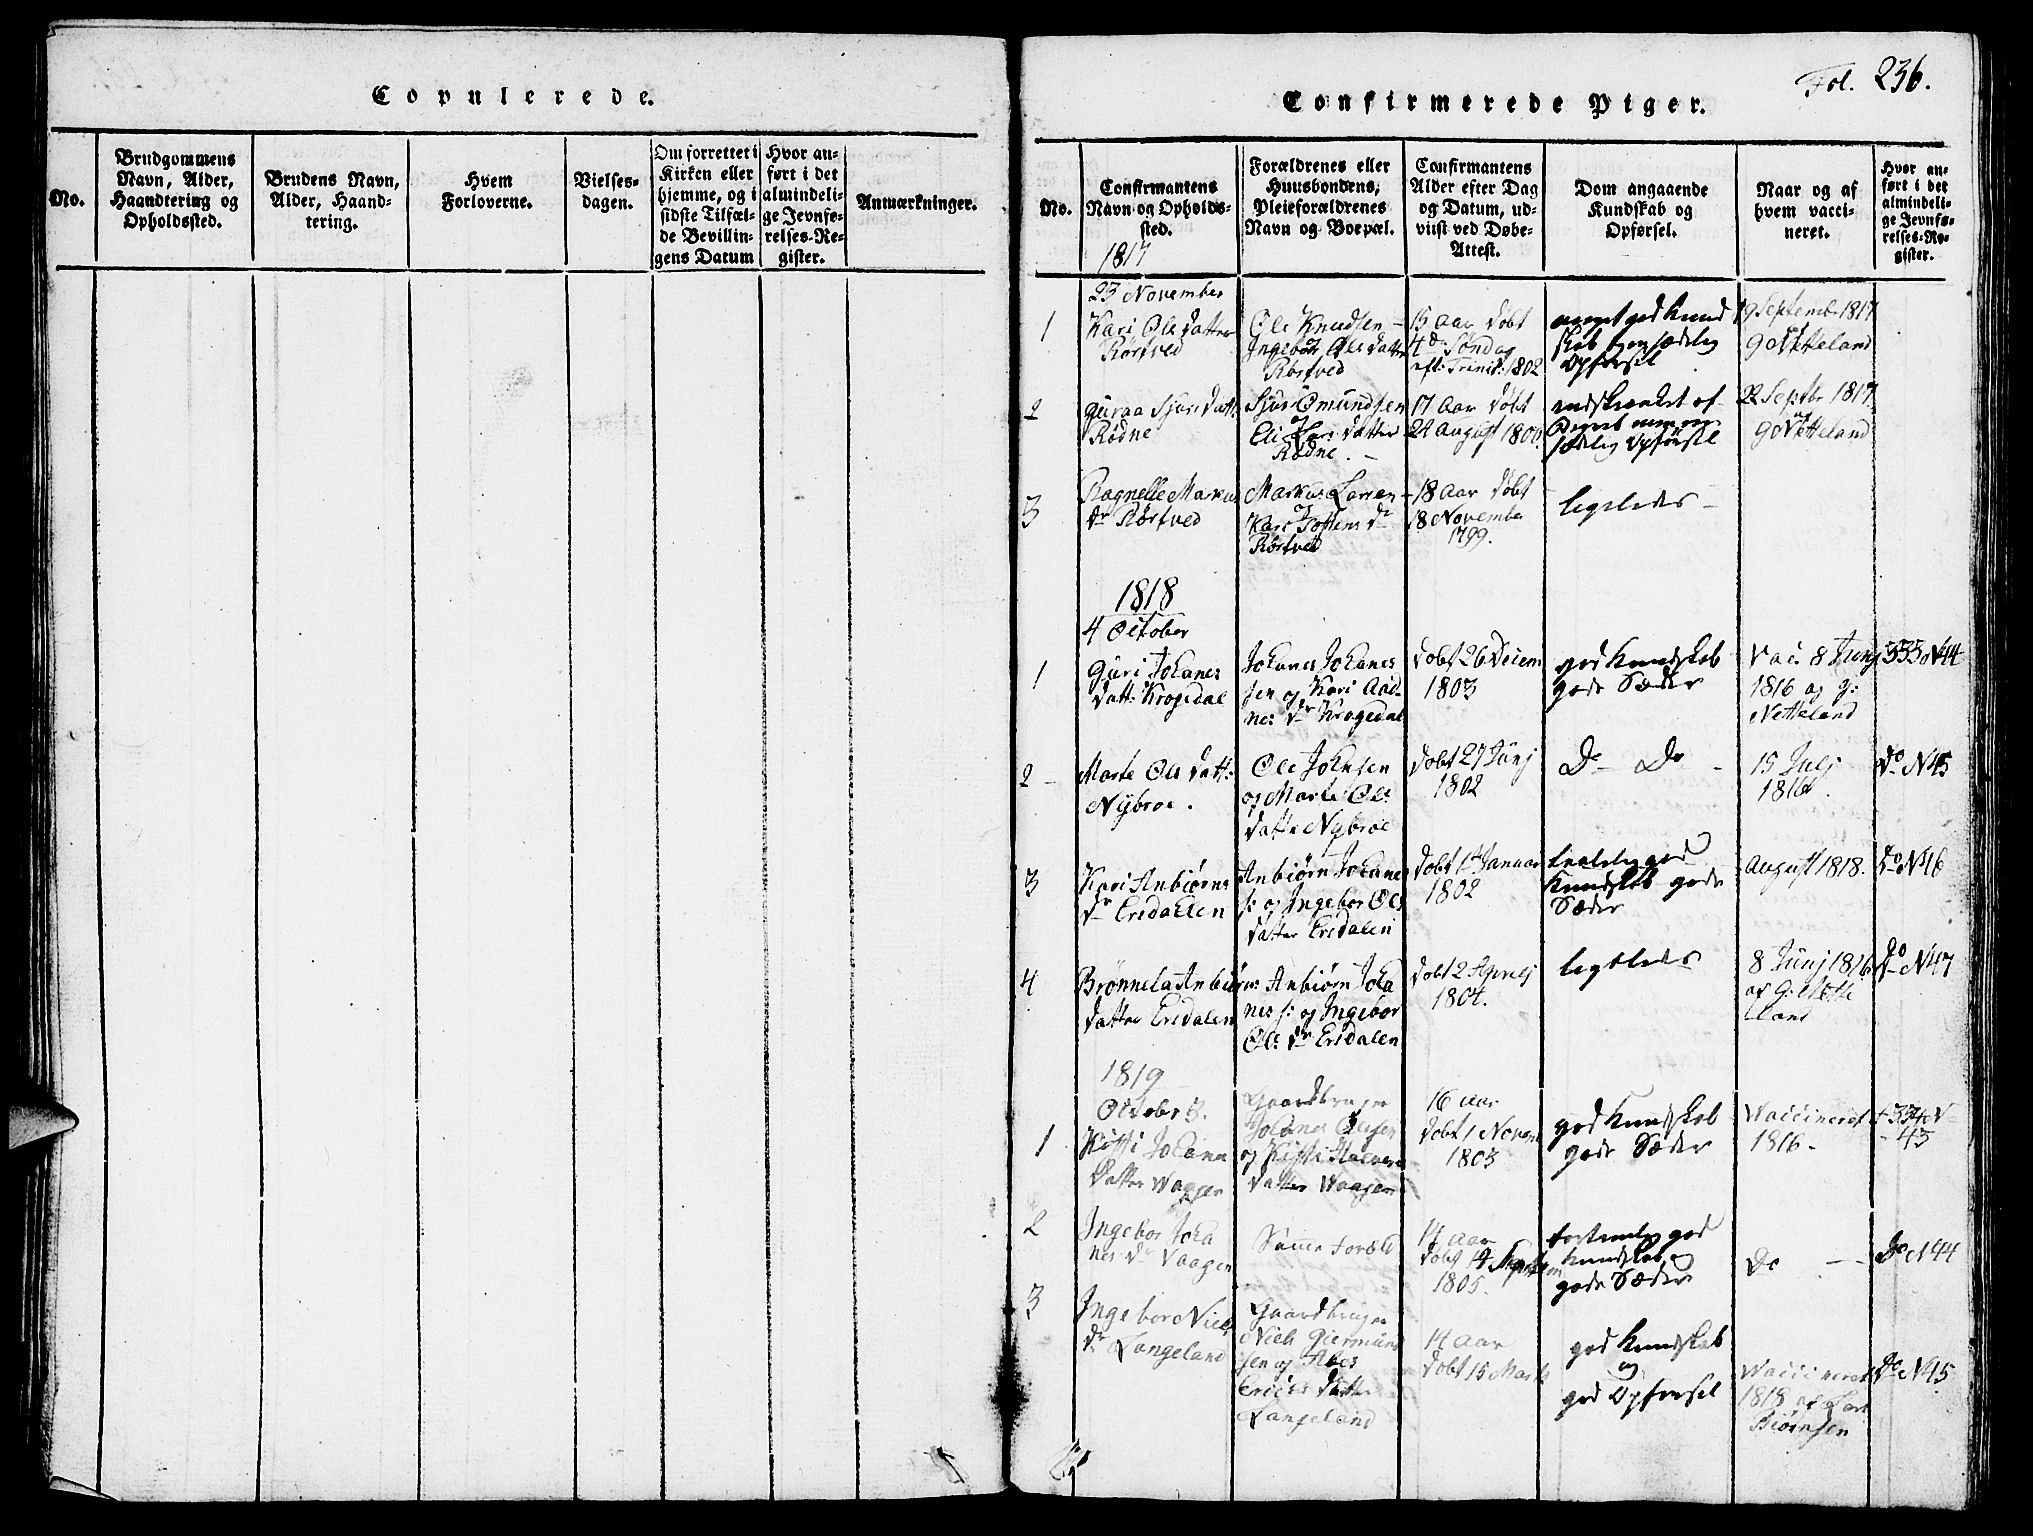 Copulerede.
No.
Brudgommens
Navn, Alder,
Haandtering og
Opholdssted.
Brudens Navn,
Alder, Haand-
tering.
Hvem
Forloverne.
Vielses-
dagen.
Om forrettet i
Kirken eller
hjemme, og i
sidste Tilfæl-
de Bevillin-
gens Datum
Hvor an-
ført i det
almindeli-
ge Jevnfø-
relses-Re-
gister.
Anmærkninger.
Fol. 236.
Confirmerede Piger.
No.
Confirmantens
Navn og Opholds-
sted.
Forældrenes eller
Huusbondens,
Pleieforældrenes
Navn og Boepæl.
Confirmantens
Alder efter Dag
og Datum, ud-
viist ved Døbe-
Attest.
Dom angaaende
Kundskab og
Opførsel.
Naar og af
hvem vacci-
neret.
Hvor an-
ført i det
almindeli-
ge Jevnfø-
relses-Re-
gister.
1817
23 November
1
Kari Ols Datter
Rørtved
Ole Knudsen
Ingebor Ols Datter
Rørtved
15 Aar døbt
4de Søndag
eft: Trinit: 1802
meget god Kund
skab og sædelig
Opførsel
19 Septemb 1817
g Netteland
2
Guraa Sjurs Datt:
Rødne
Sjur Omundsen
Eli Lars Datter
Rødne.
17 Aar døbt
24 August 1800
indskrænket af
sædelig Opførsel
22 Septbr 1817
g Netteland
3
Ragnelle Markus
Dr Rørtved
Markus Larsen
Kari Tostens Dr
Rørtved
18 Aar døbt
18 November
1799.
ligeledes
1818
4 October
1
Guri Johanes
Datt: Krogedal
Johanes Johanes
sen og Kari Aad
nes Dr Krogedal
døbt 26 Decem
1803
god Kundskab
gode Sæder
Vac. 8 Junj
1816 af g:
Netteland
333 N44
2
Marte Ols Datt:
Nybroe.
Ole Johnsen
og Marte Ols
Datter Nybroe
døbt 27 Junj
1802
Do Do
15 Julj
1816.
Do N45
3
Kari Anbiørns
Dr Eredalen
Anbiørn Johanes
s: og Ingebor Ols
datter Eredalen
døbt 1 Januar
1802
Kundskab gode
Sæder
August 1818.
Do N46
4
Brønnela Anbiørns
datter Eredalen
Anbiørn Joha
nes s: og Ingebor
Ols Dr Eredalen
døbt 2 Aprilj
1804.
ligeledes
8 Junj 1816
af g: Nette
land
Do N47
1819
October 3.
1
Kisti Johanes
Datter Waagen
Gaardbruger
Johanes Olsen
og Kisti Halvors
datter Waagen
16 Aar
døbt 1 Novem
1803
god Kundskab
gode Sæder
Vaccineret
1816
334 N
43
2
Ingebor Joha
nes Dr Vaagen
Samme Foræld
14 Aar
døbt 14 Septem
1805.
god
Kundskab og
gode Sæder
Do
Do N44
3
Ingebor Niels
Dr Langeland
Gaardbruger
Niels Giermund
sen og
Ericks Datter
Langeland
14 Aar
døbt 15 Marts
god Kundskab
og
god Opførsel
Vaccineret
1818 af Lars
Biørnsen
Do N45